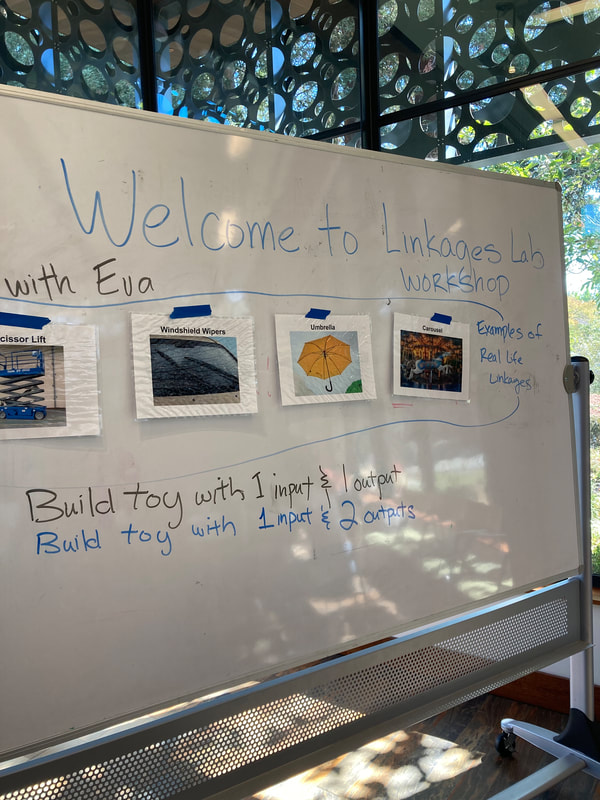 Welcome to Linkages Lab
WORKSHOP
with Eva
cissor Lift
Windshield Wipers
Umbrella
Carousel
Examples of
Real life
Linkages!
Build toy with 1 input & 1 output
Build toy with 1 input & 2 outputs